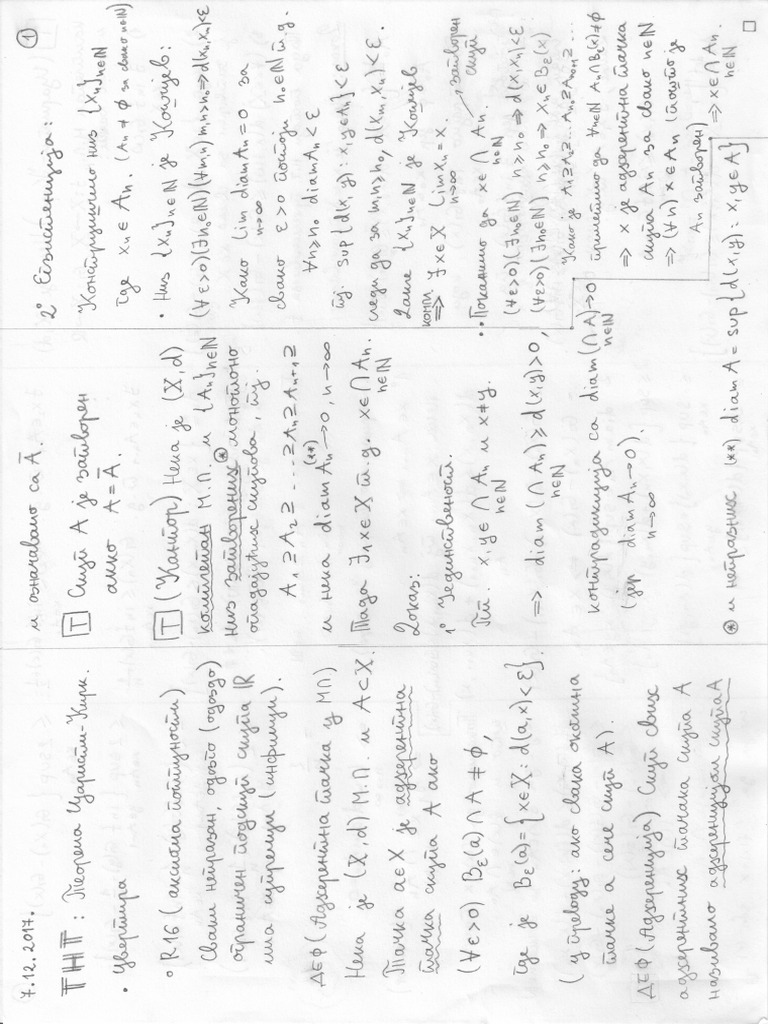 7.12.2017.
ТНТ : Теорема Царисти-Кирк.
• Увертира
• R16 (аксиома потпуности)
Сваки непразан, одозго (одоздо)
ограничен подскуп скупа ℝ
има супремум (инфимум).
ДЕФ (Адхерентна тачка у МП)
Нека је (X, d) М.П. и A⊂X.
Тачка a∈X је адхерентна
тачка скупа A ако
(∀ε>0) Bε(a)∩A≠∅,
где је Bε(a)={x∈X: d(a,x)<ε}.
(у преводу: ако свака околина
тачке a сече скуп A).
ДЕФ (Адхеренција) Скуп свих
адхерентних тачака скупа A
називамо адхеренцијом скупа A
и означавамо са Ā.
[T] Скуп A је затворен
акко A=Ā.
[T] (Кантор) Нека је (X,d)
комплетан М.П. и {An}n∈ℕ
низ затворених⊛ монотоно
опадајућих скупова, тј.
A1⊇A2⊇...⊇An⊇An+1⊇
и нека diam An→0, n→∞
(**)
Тада ∃1 x∈X т.д. x∈∩An.
n∈ℕ
Доказ:
1° Јединственост.
Пп. x,y∈∩An и x≠y.
n∈ℕ
⇒ diam(∩An)≥d(x,y)>0,
n∈ℕ
контрадикција са diam(∩A)→0
n∈ℕ
(јер diam An→0).
n→∞
⊛ и непразних (**) diam A = sup{d(x,y): x,y∈A}
①
2° Егзистенција:
Конструишимо низ {xn}n∈ℕ
где xn∈An. (An≠∅ за свако n∈ℕ)
• Низ {xn}n∈ℕ је Кошијев:
(∀ε>0)(∃n0∈ℕ)(∀m,n) m,n≥n0⇒d(xn,xm)<ε
Како lim diam An=0 за
n→∞
свако ε>0 постоји n0∈ℕ т.д.
∀n≥n0 diam An<ε
тј. sup{d(x,y): x,y∈An}<ε
следи да за m,n≥n0, d(xm,xn)<ε.
Дакле {xn}n∈ℕ је Кошијев
компл.
⇒ ∃x∈X lim xn=x.
n→∞
•• Покажимо да x∈∩An.
n∈ℕ
затворен скуп
(∀ε>0)(∃n0∈ℕ) n≥n0⇒d(x,xn)<ε
(∀ε>0)(∃n0∈ℕ) n≥n0⇒xn∈Bε(x)
Како је A1⊇A2⊇...An0⊇An0+1⊇...
приметимо да ∀n∈ℕ An∩Bε(x)≠∅
⇒ x је адхерентна тачка
скупа An за свако n∈ℕ
⇒ (∀n) x∈An (пошто је
An затворен) ⇒ x∈∩An.
n∈ℕ
□